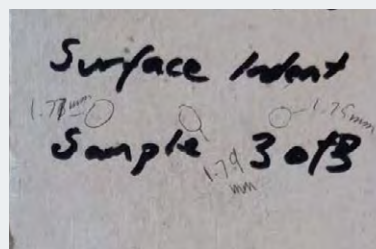 Surface Indent
1.78mm
1.75mm
Sample 3 of 3
1.79
mm